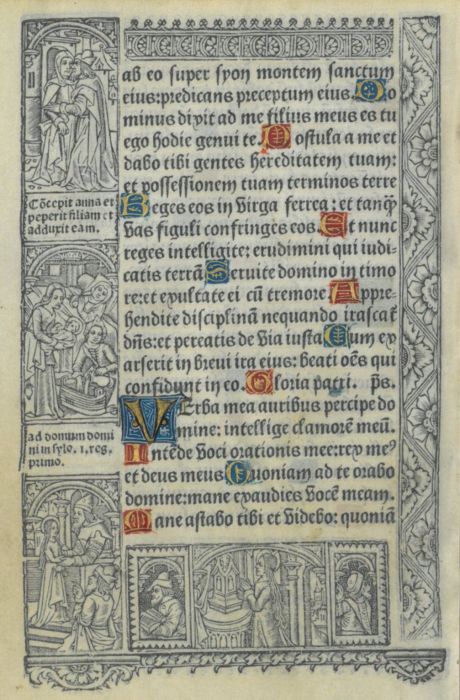 ab eo super syon montem sanctum
eius: predicans preceptum eius. Do
minus dixit ad me filius meus es tu
ego hodie genui te. Postula a me et
dabo tibi gentes hereditatem tuam:
et possessionem tuam terminos terre
Reges eos in virga ferrea: et tanq̄
vas figuli confringes eos. Et nunc
reges intelligite: erudimini qui iudi-
catis terrā. Seruite domino in timo
re: et exultate ei cū tremore. Appre-
hendite disciplinā nequando irascat̄
dn̄s: et pereatis de via iusta. Cum ex
arserit in breui ira eius: beati oēs qui
confidunt in eo. Gloria patri. ps.
Verba mea auribus percipe do
mine: intellige clamorē meū.
Intēde voci orationis mee: rex me⁹
et deus meus. Quoniam ad te orabo
domine: mane exaudies vocē meam.
Mane astabo tibi et videbo: quoniā
Cōcepit anna et
peperit filiam et
adduxit eam,
ad domum domi
ni in sylo. 1. reg.
primo.